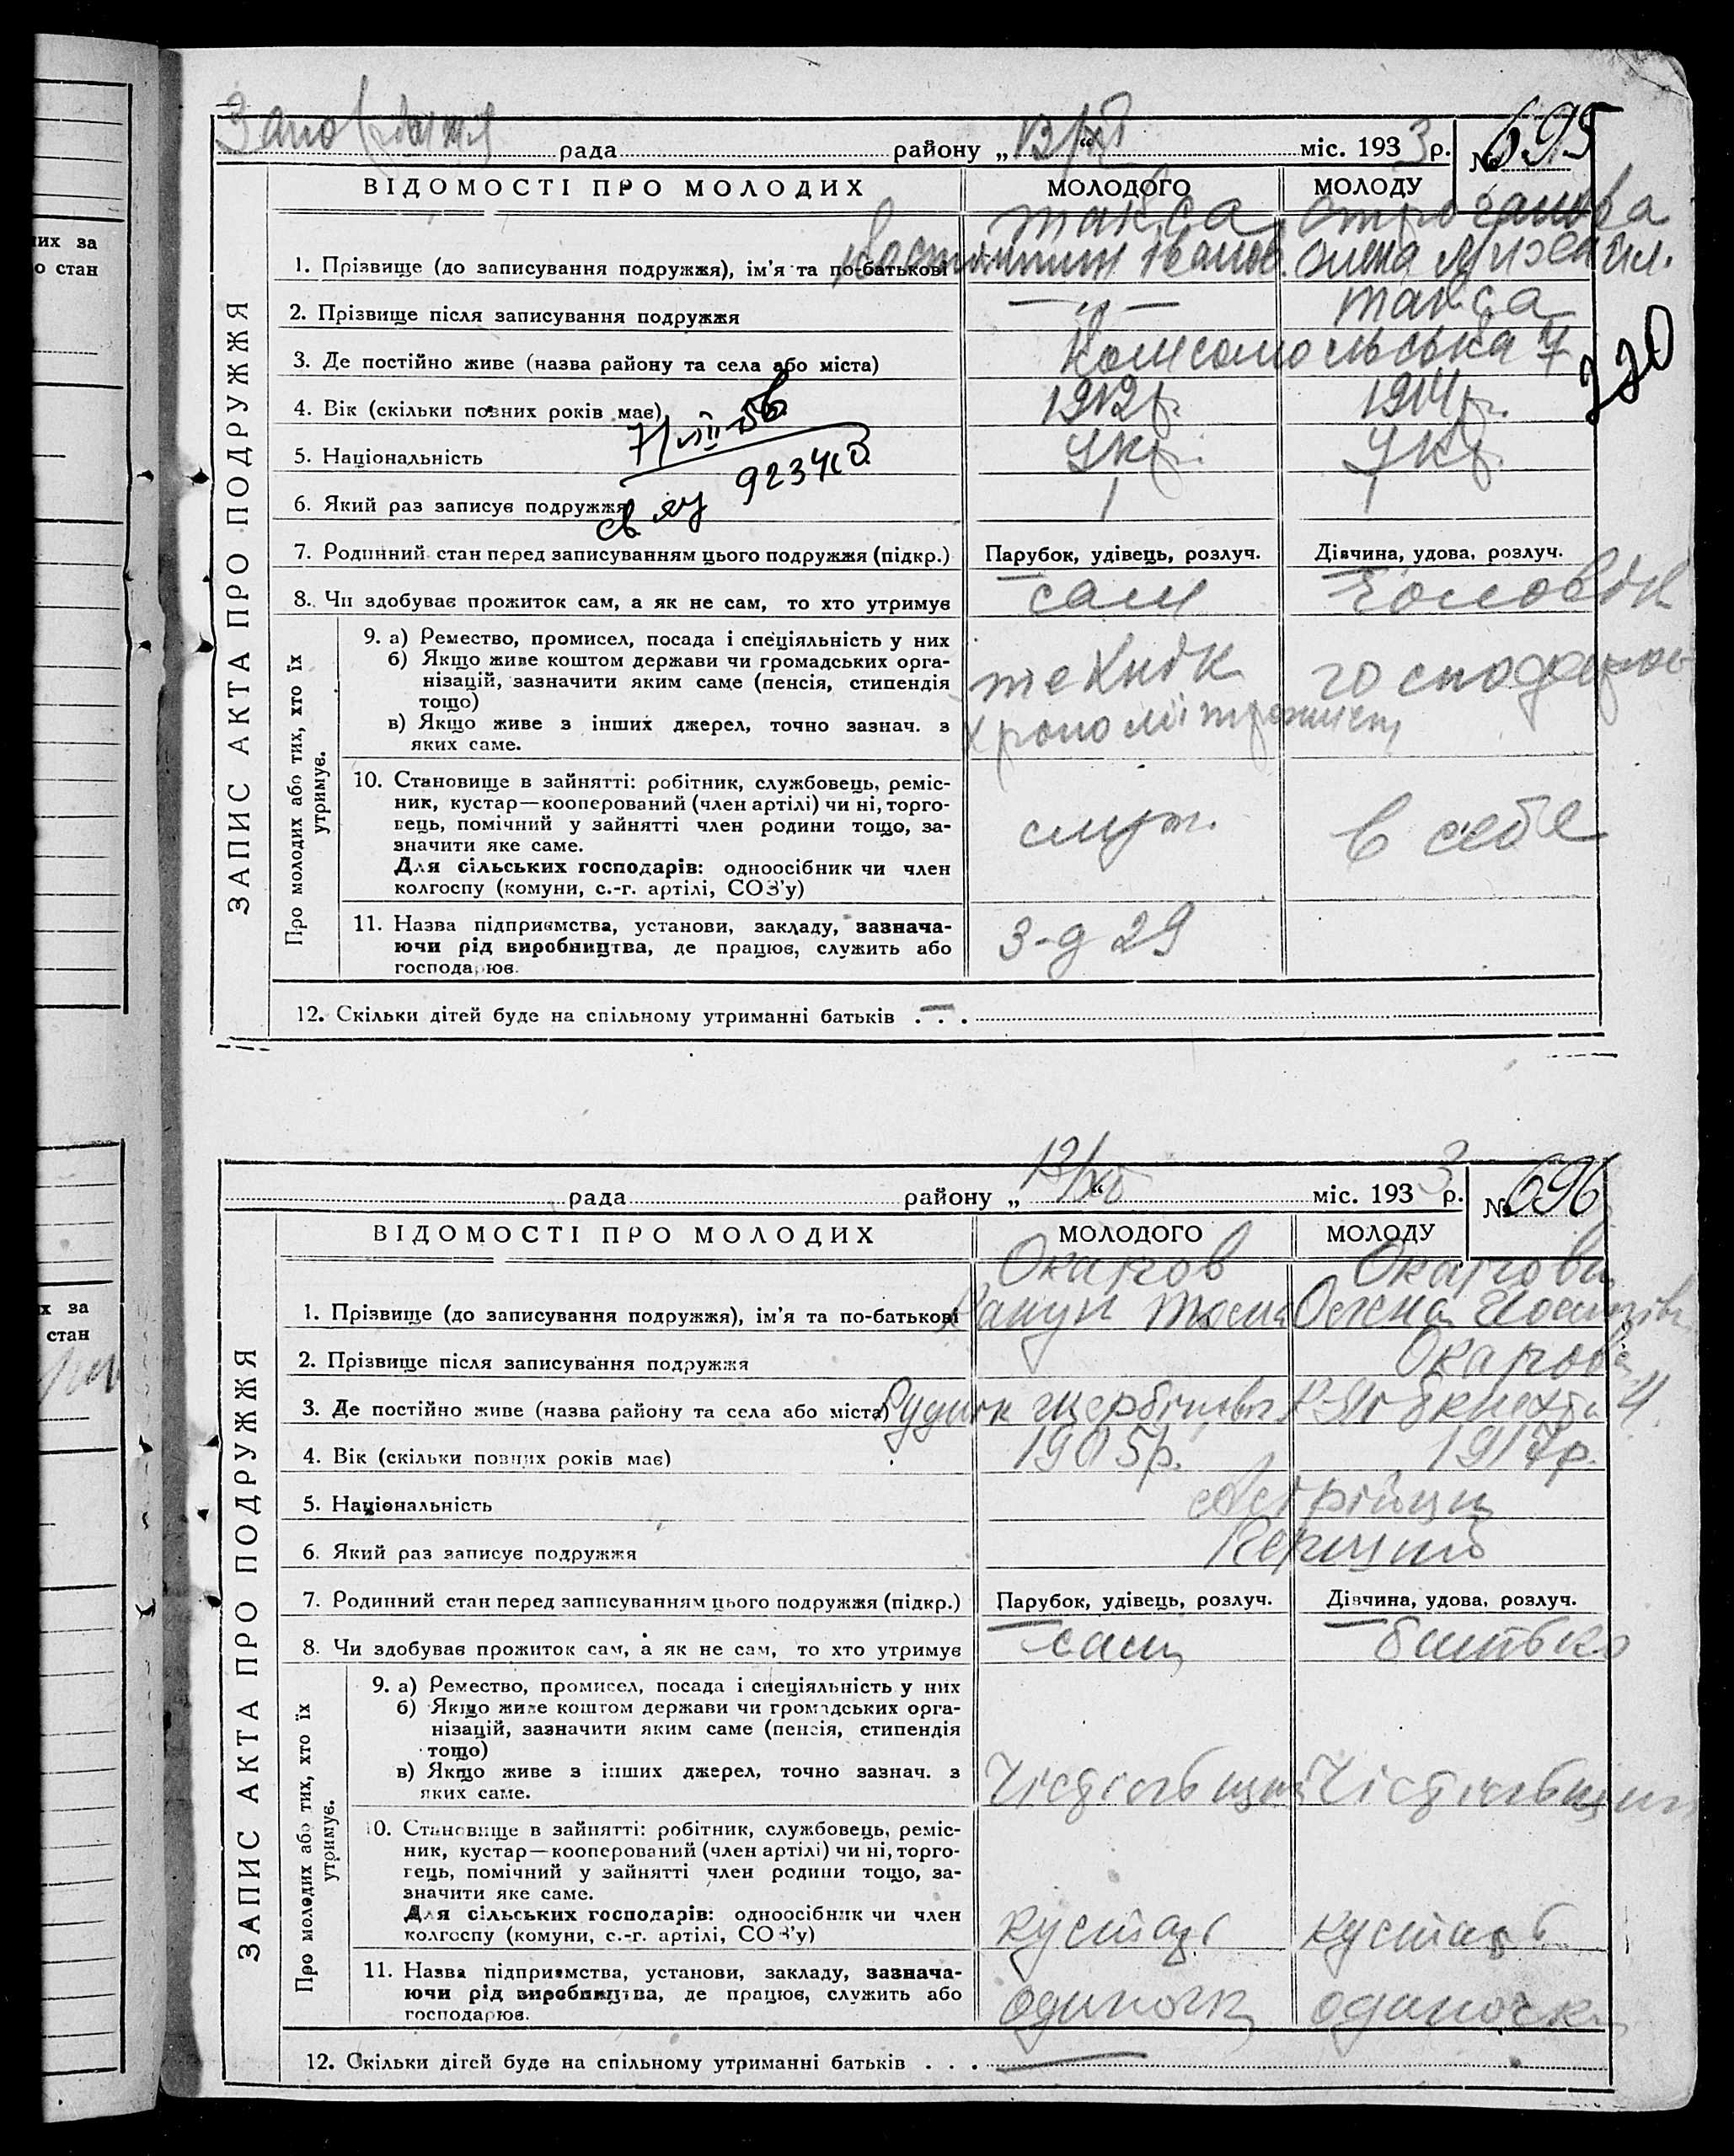 их за
о стан
рада района „13/XI“ міс. 1933 р. № 695
ВІДОМОСТІ ПРО МОЛОДИХ МОЛОДОГО МОЛОДУ
ЗАПИС АКТА ПРО ПОДРУЖЖЯ
Такса
1. Прізвище (до записування подружжя), ім'я та по-батькові Костянтин Іванов. Олена Михайл.
2. Прізвище після записування подружжя —„— Такса
3. Де постійно живе (назва району та села або міста) Комсомольська 7
220
4. Вік (скільки повних років має) 1912 р. 1914 р.
7/VIII-56
5. Національність Укр. Укр.
6. Який раз записує подружжя 1 1
7. Родинний стан перед записуванням цього подружжя (підкр.) Парубок, удівець, розлуч. Дівчина, удова, розлуч.
8. Чи здобуває прожиток сам, а як не сам, то хто утримує сам чоловік
Про молодих або тих, хто їх утримує.
9. а) Ремество, промисел, посада і спеціяльність у них
б) Якщо живе коштом держави чи громадських орга-
нізацій, зазначити яким саме (пенсія, стипендія технік
тощо)
в) Якщо живе з інших джерел, точно зазнач. з
яких саме.
10. Становище в зайнятті: робітник, службовець, реміс-
ник, кустар—кооперований (член артілі) чи ні, торго-
вець, помічний у зайнятті член родини тощо, за- служ. в себе
значити яке саме.
Для сільських господарів: одноосібник чи член
колгоспу (комуни, с.-г. артілі, СОЗ'у)
11. Назва підприємства, установи, закладу, зазнача-
ючи рід виробництва, де працює, служить або З-д 29
господарює.
12. Скільки дітей буде на спільному утриманні батьків . . . —
х за
стан
рада району „13/XI“ міс. 1933 р. № 696
ВІДОМОСТІ ПРО МОЛОДИХ МОЛОДОГО МОЛОДУ
ЗАПИС АКТА ПРО ПОДРУЖЖЯ
Окапов Окапова
1. Прізвище (до записування подружжя), ім'я та по-батькові
2. Прізвище після записування подружжя Окапова
3. Де постійно живе (назва району та села або міста) Рудник
4. Вік (скільки повних років має) 1905 р. 1917 р.
5. Національність
6. Який раз записує подружжя Перший
7. Родинний стан перед записуванням цього подружжя (підкр.) Парубок, удівець, розлуч. Дівчина, удова, розлуч.
8. Чи здобуває прожиток сам, а як не сам, то хто утримує сам батько
Про молодих або тих, хто їх утримує.
9. а) Ремество, промисел, посада і спеціяльність у них
б) Якщо живе коштом держави чи громадських орга-
нізацій, зазначити яким саме (пенсія, стипендія
тощо)
в) Якщо живе з інших джерел, точно зазнач. з
яких саме.
10. Становище в зайнятті: робітник, службовець, реміс-
ник, кустар—кооперований (член артілі) чи ні, торго-
вець, помічний у зайнятті член родини тощо, за-
значити яке саме.
Для сільських господарів: одноосібник чи член
колгоспу (комуни, с.-г. артілі, СОЗ'у) кустарь кустарь
11. Назва підприємства, установи, закладу, зазнача-
ючи рід виробництва, де працює, служить або одиночка одиночка
господарює.
12. Скільки дітей буде на спільному утриманні батьків . . . —